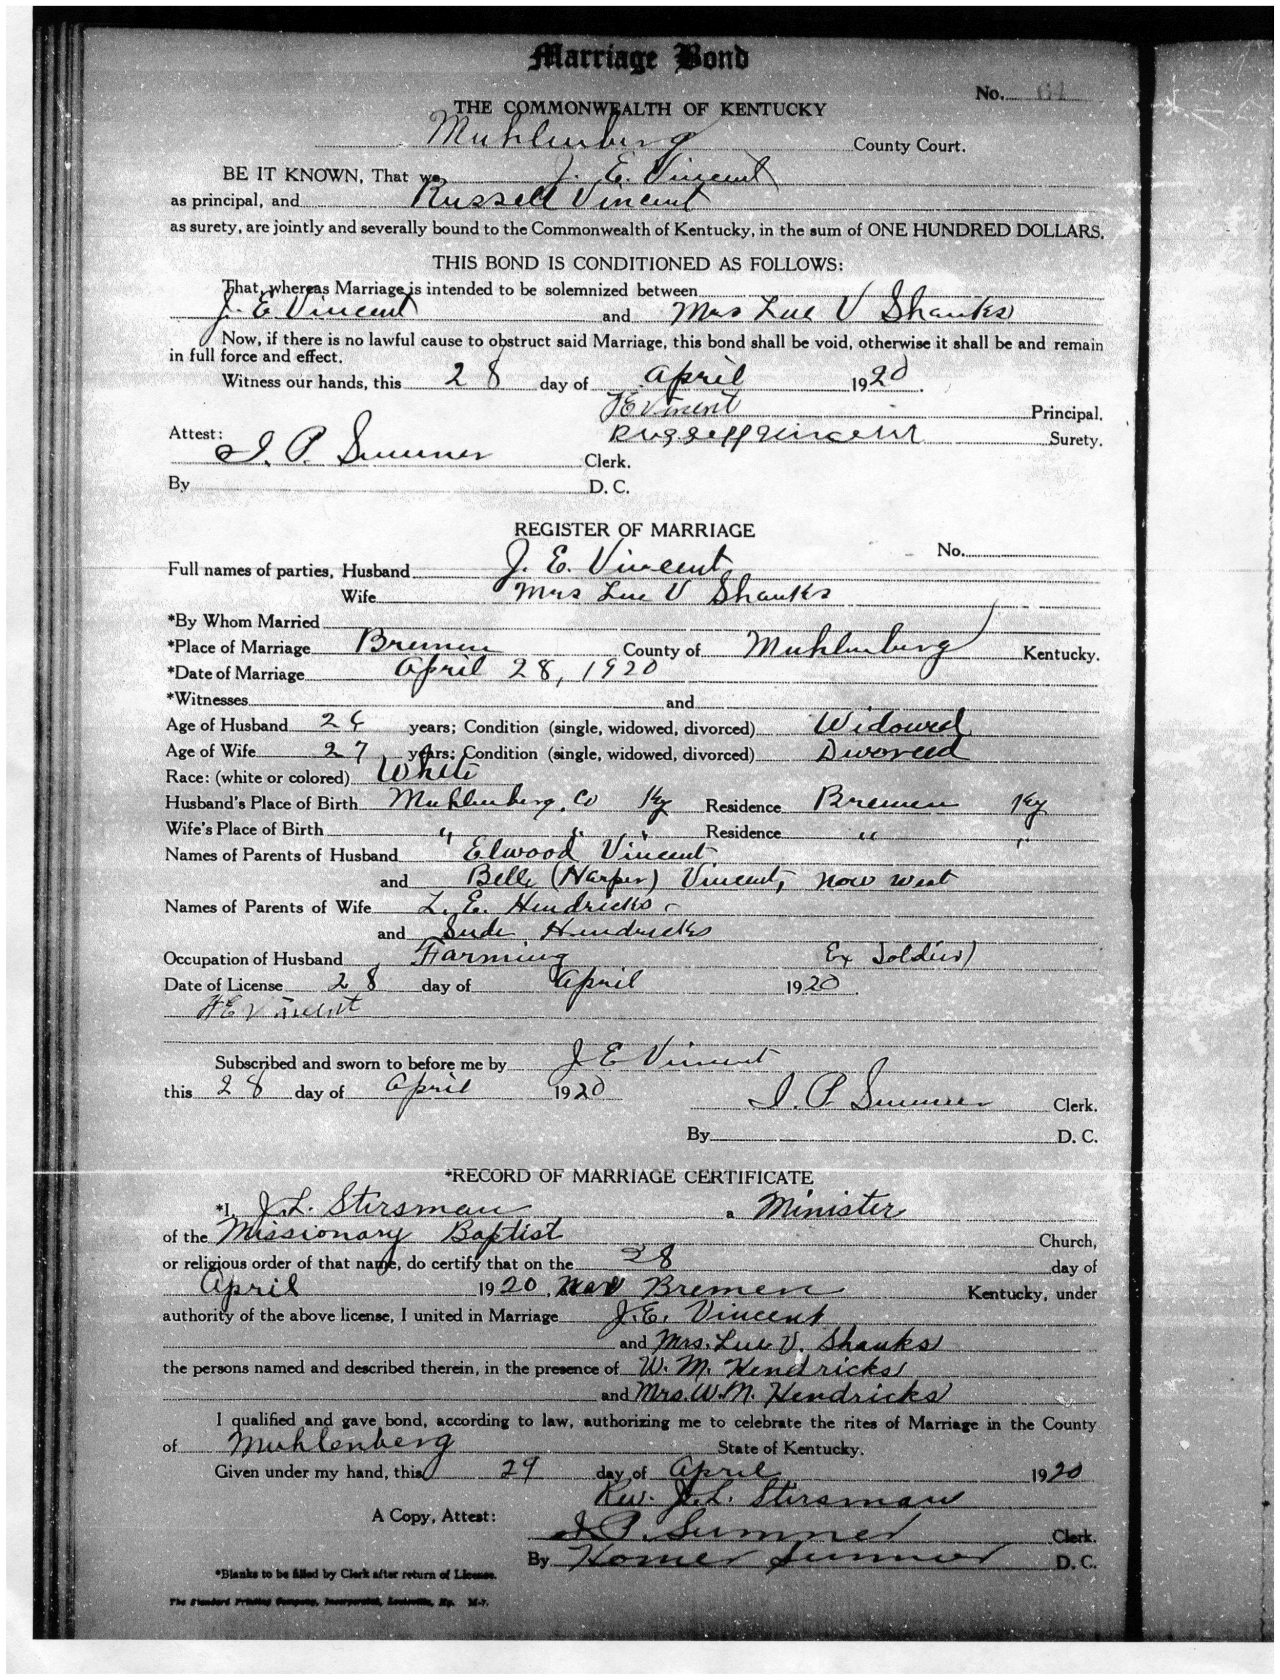 Marriage Bond
No. 61
THE COMMONWEALTH OF KENTUCKY
Muhlenberg County Court.
BE IT KNOWN, That we J. E. Vincent
as principal, and Russell Vincent
as surety, are jointly and severally bound to the Commonwealth of Kentucky, in the sum of ONE HUNDRED DOLLARS,
THIS BOND IS CONDITIONED AS FOLLOWS:
That, whereas Marriage is intended to be solemnized between
J. E Vincent and Mrs Lue V Shanks
Now, if there is no lawful cause to obstruct said Marriage, this bond shall be void, otherwise it shall be and remain
in full force and effect.
Witness our hands, this 28 day of April 1920.
J E Vincent Principal.
Russell Vincent Surety.
Attest: I. P. Summer Clerk.
By D. C.
REGISTER OF MARRIAGE
No.
Full names of parties, Husband J. E. Vincent
Wife Mrs Lue V Shanks
*By Whom Married
*Place of Marriage Bremen County of Muhlenburg Kentucky.
*Date of Marriage April 28, 1920
*Witnesses and
Age of Husband 26 years; Condition (single, widowed, divorced) Widowed
Age of Wife 27 years; Condition (single, widowed, divorced) Divorced
Race: (white or colored) White
Husband's Place of Birth Muhlenberg, Co Ky Residence Bremen Ky
Wife's Place of Birth " " " Residence " "
Names of Parents of Husband Elwood Vincent
and Belle (Harper) Vincent, now West
Names of Parents of Wife L. E. Hendricks
and Sude Hendricks
Occupation of Husband Farming Ex Soldier)
Date of License 28 day of April 1920.
J E Vincent
Subscribed and sworn to before me by J E Vincent
this 28 day of April 1920
I. P. Summer Clerk.
By D. C.
*RECORD OF MARRIAGE CERTIFICATE
*I, J. L. Stirsman a Minister
of the Missionary Baptist Church,
or religious order of that name, do certify that on the 28 day of
April 1920, near Bremen Kentucky, under
authority of the above license, I united in Marriage J. E. Vincent
and Mrs. Lue V. Shanks
the persons named and described therein, in the presence of W. M. Hendricks
and Mrs. W. M. Hendricks
I qualified and gave bond, according to law, authorizing me to celebrate the rites of Marriage in the County
of Muhlenberg State of Kentucky.
Given under my hand, this 29 day of April 1920
Rev. J. L. Stirsman
A Copy, Attest:
I. P. Summer Clerk.
By Homer Summer D. C.
*Blanks to be filled by Clerk after return of License.
The Standard Printing Company, Incorporated, Louisville, Ky. M-7.